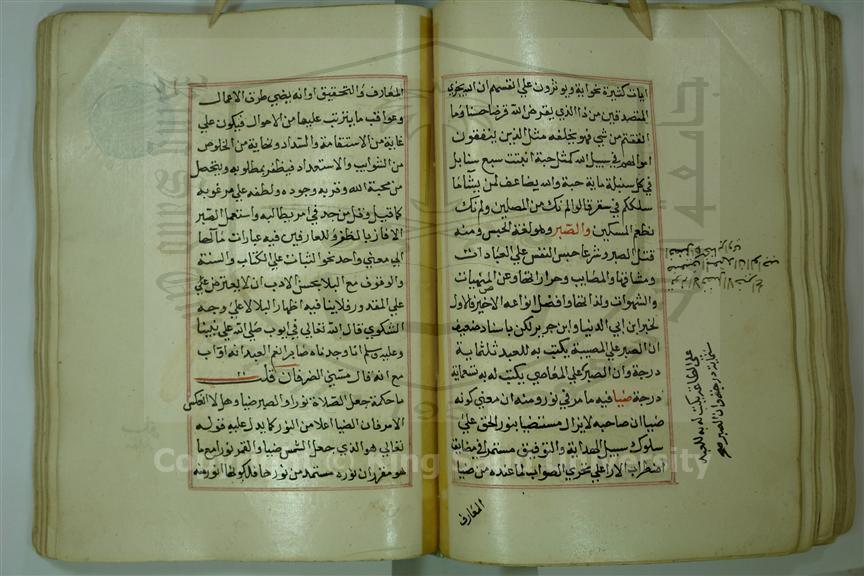 ايات كثيرة نحو اية ويوثرون علي انفسهم ان الله يجزي
المتصدقين من ذا الذي يقرض الله قرضا حسنا وما
انفقتم من شي فهو يخلفه مثل الذين ينفقون
اموالهم في سبيل الله كمثل حبة انبتت سبع سنابل
في كل سنبلة ماية حبة والله يضاعف لمن يشا ما
سلككم في سقر قالوا لم نك من المصلين ولم نك
نطعم المسكين والصبر وهو لغة الحبس ومنه
قتل الصبر وشرعا حبس النفس علي العبادات
ومشاقها والمصايب وحرارتها وعن المنهيات
والشهوات ولذاتها وافضل انواعه الاخير فالاول
لخبر ابن ابي الدنيا وابن جرير لكن باسناد ضعيف
ان الصبر علي المصيبة يكتب به للعبد ثلثماية
درجة وان الصبر علي المعاصي يكتب له به تسعماية
درجة ضيا فيه ما مر في نور ومنه ان معني كونه
ضيا ان صاحبه لا يزال مستضيا بنور الحق علي
سلوك سبيل الهداية والتوفيق مستمر في مضايق
اضطراب الارا علي تحري الصواب لما عنده من ضيا
المعارف
علي الطاعة يكتب له به للعبد
ستماية درجة وان الصبر صح
المعارف والتحقيق او انه يضي طرق الاعمال
وعواقب ما يترتب عليها من الاحوال فيكون علي
غاية من الاستقامة والسداد ونهاية من الخلوص
من الشوايب والاستعداد فيظفر بمطلوبه ويتحصل
من محبة الله وقربه وجوده ولطفه علي مرغوبه
كما قيل وقل من جد في امر يطالبه واستعمل الصبر
الا فاز بالظفر وللعارفين فيه عبارات مآلها
الي معني واحد نحو الثبات علي الكتاب والسنة
والوقوف مع البلا بحسن الادب ان لا يعترض علي
علي المقدور فلا ينافيه اظهار البلا لا علي وجه
الشكوي قال الله تعالي في ايوب صلي الله علي نبينا
وعليه وسلم انا وجدناه صابرا نعم العبد انه اواب
مع انه قال مسني الضر فان قلت
ما حكمة جعل الصلاة نورا والصبر ضيا وهلا انعكس
الامر فان الضيا اعلا من النور كما يدل عليه قوله
تعالي هو الذي جعل الشمس ضيا والقمر نورا مع ما
هو مقرر ان نوره مستمد من نورها